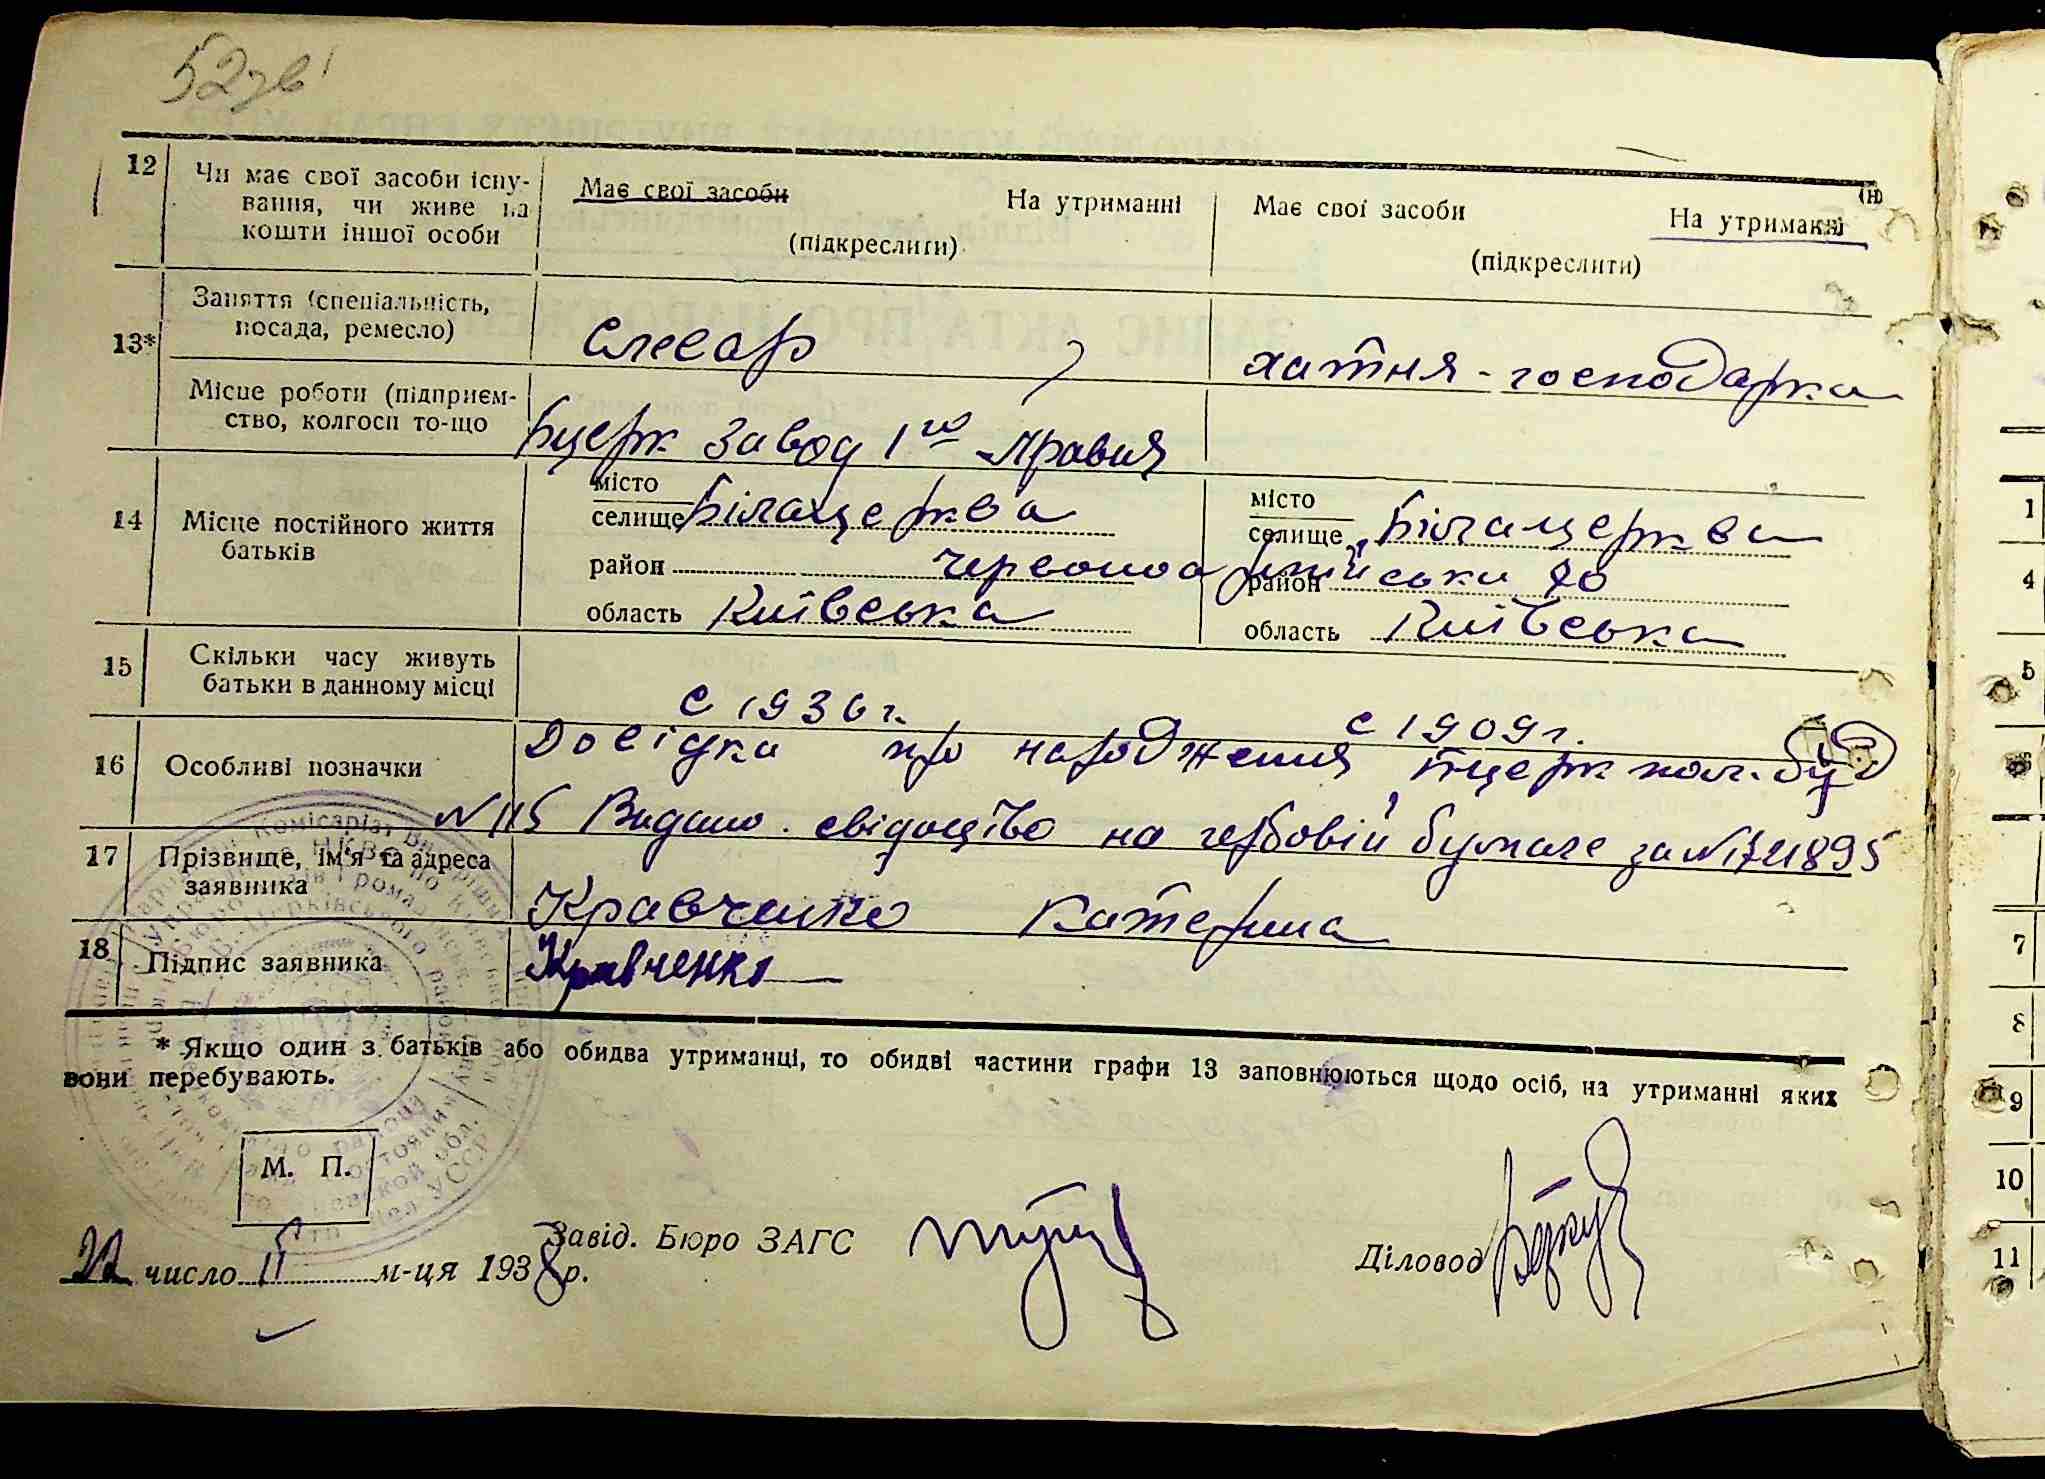 52зв
12 Чи має свої засоби існу-
вання, чи живе на
кошти іншої особи
Має свої засоби На утриманні
(підкреслити)
Має свої засоби На утриманні
(підкреслити)
13* Заняття (спеціальність,
посада, ремесло)
Слесар
хатня-господарка
Місце роботи (підприєм-
ство, колгосп то-що
Бцерк Завод 1го Травня
14 Місце постійного життя
батьків
місто
селище Білацерква
район Червоноармійська 70
область Київська
місто
селище Білацерква
район
область Київська
15 Скільки часу живуть
батьки в данному місці
с 1936 г.
с 1909 г.
16 Особливі позначки
Довідка про народження Бцерк пол. буд
N 115 Видано свідоцтво на гербовій бумаге за N 1741895
17 Прізвище, ім'я та адреса
заявника
Кравченко Катерина
18 Підпис заявника
Кравченко
* Якщо один з батьків або обидва утриманці, то обидві частини графи 13 заповнюються щодо осіб, на утриманні яких
вони перебувають.
М. П.
22 число II м-ця 1938 р.
Завід. Бюро ЗАГС
Діловод
1
4
5
6
7
8
9
10
11